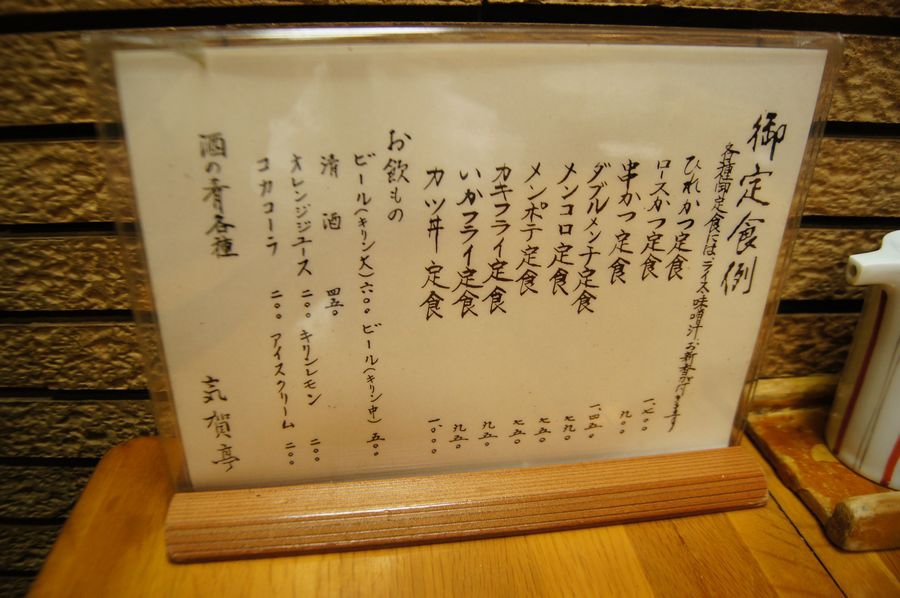 御定食例
各種御定食には、ライス、味噌汁、お新香が付きます
ひれかつ定食
ロースかつ定食
串かつ定食
ダブルメンチ定食
メンコロ定食 七五〇
メンポテ定食 七五〇
カキフライ定食 九五〇
いかフライ定食 九五〇
カツ丼定食 一、〇〇〇
お飲もの
ビール(キリン大)六〇〇 ビール(キリン中)五〇〇
清酒 四五〇
オレンジジュース 二〇〇 キリンレモン 二〇〇
コカコーラ 二〇〇 アイスクリーム 二〇〇
酒の肴各種 気賀亭